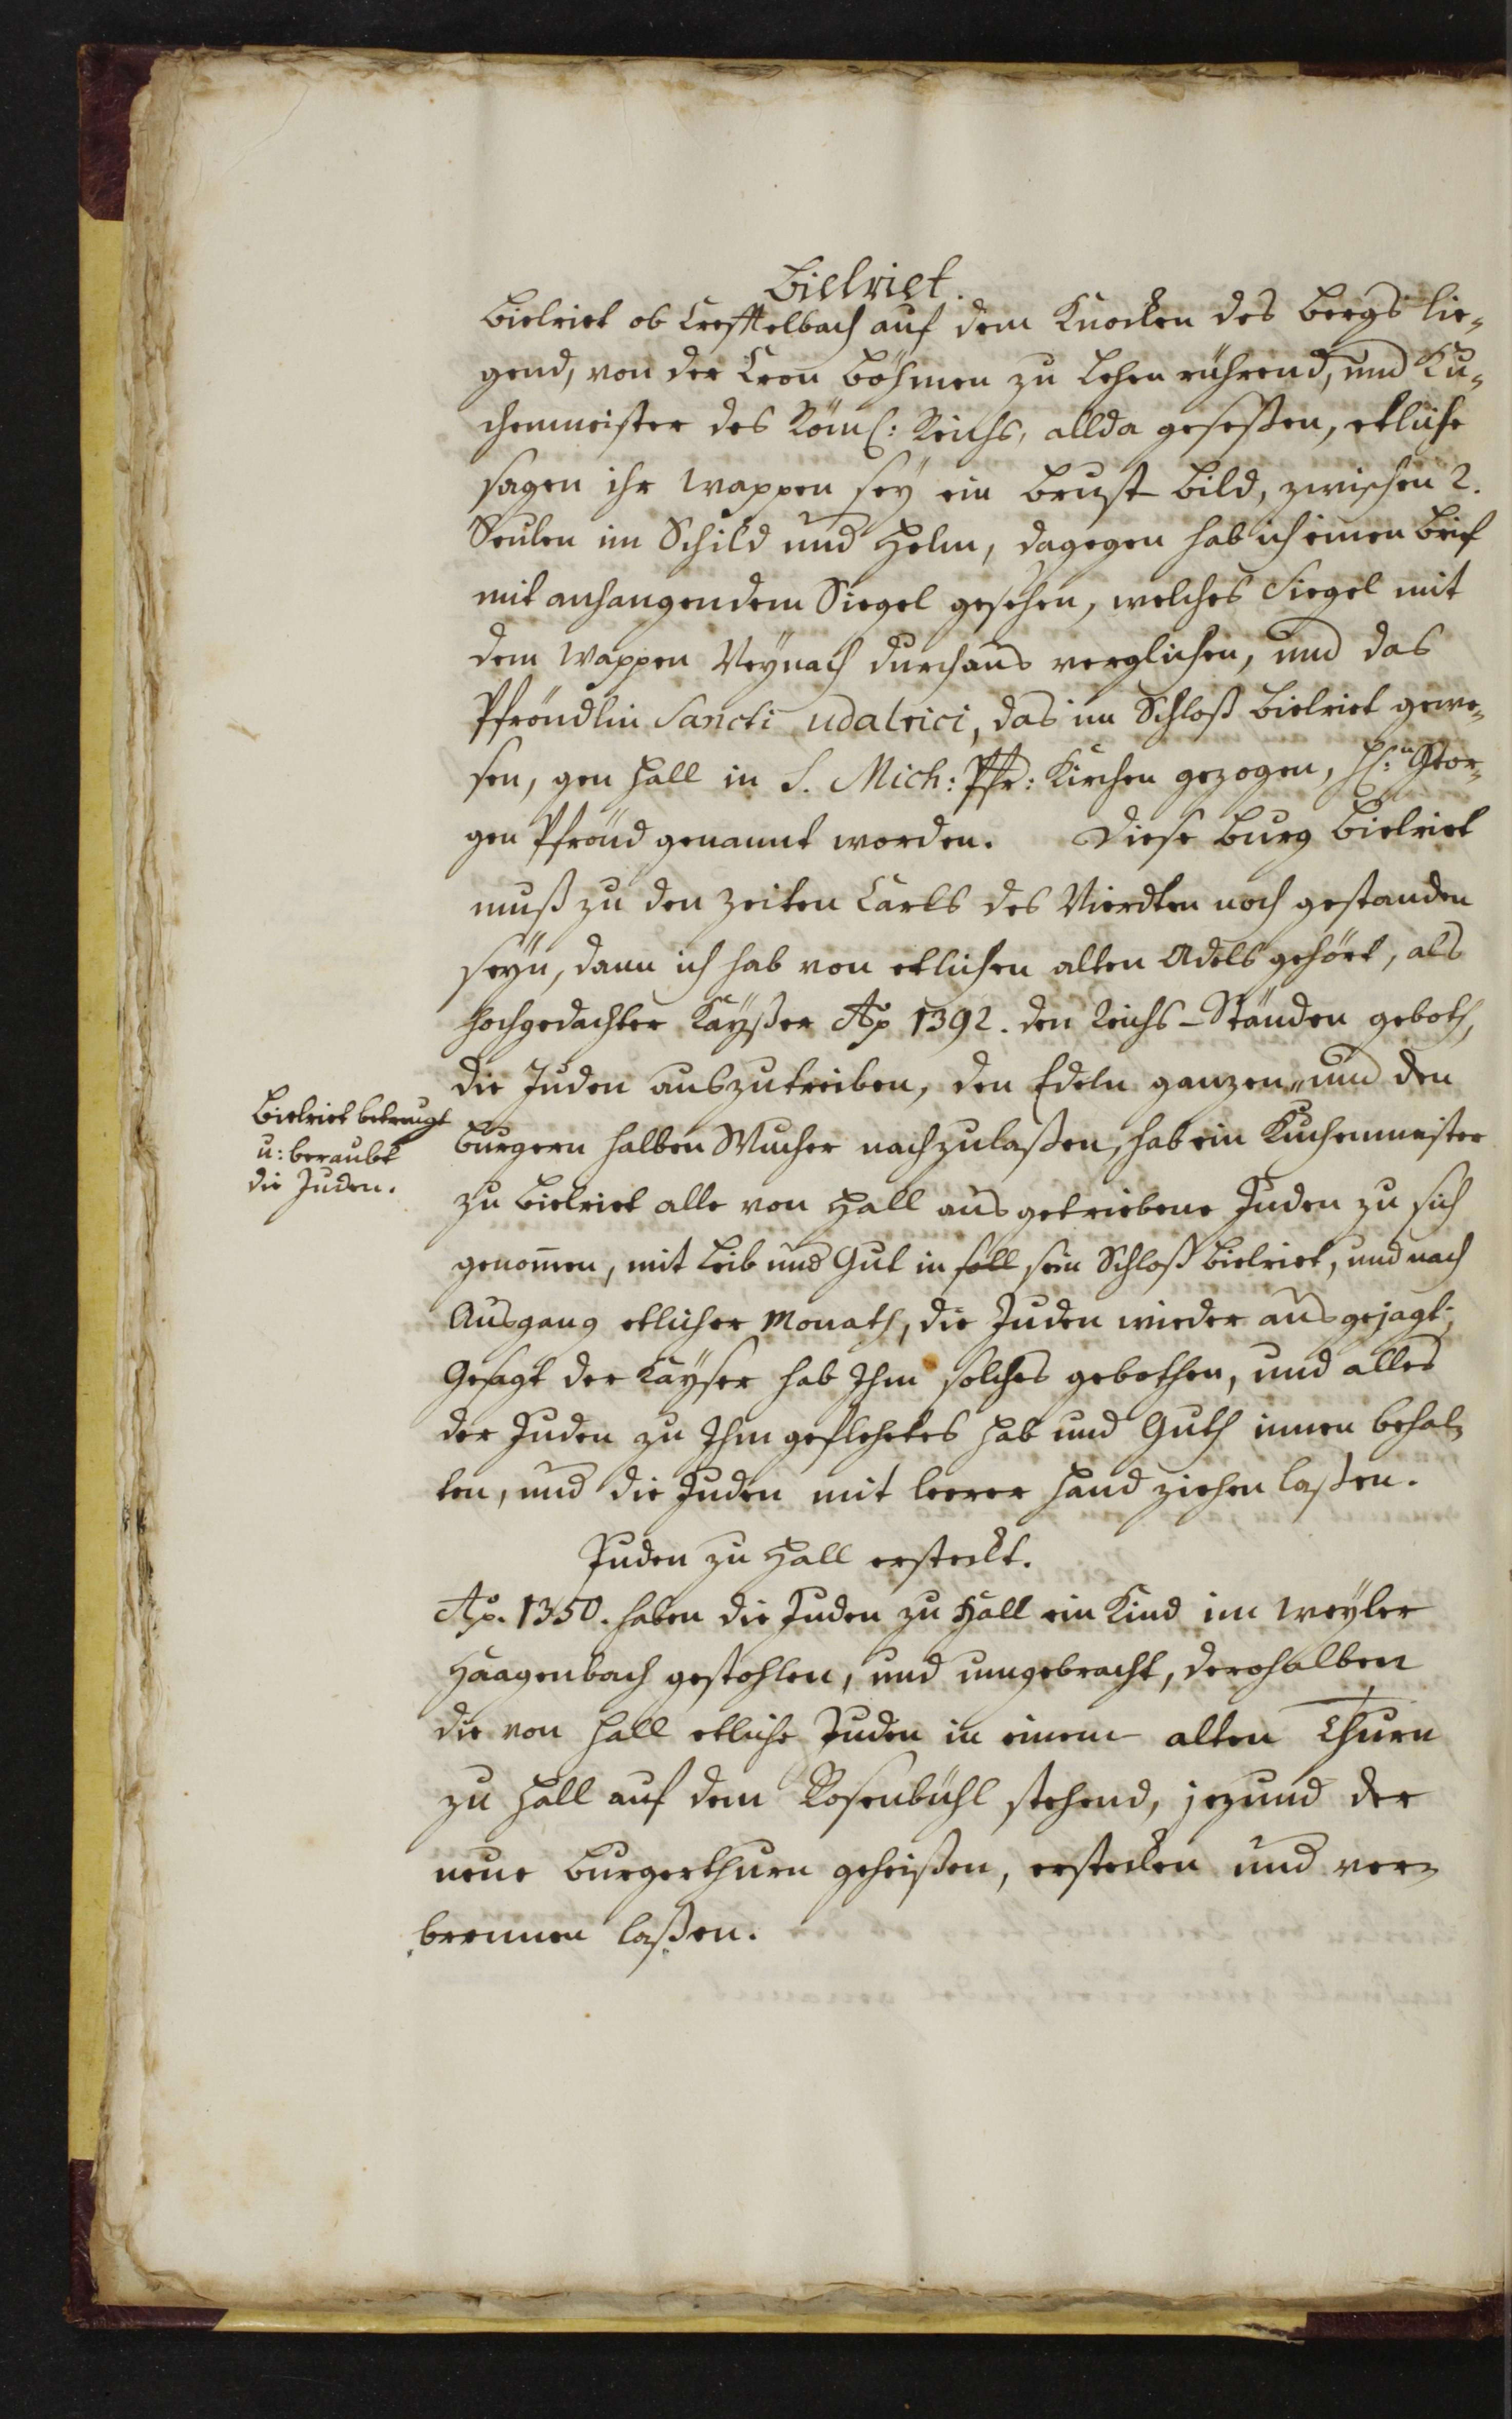 Bielriet.
Bielriet ob Crefftelbach auf dem Knocken des Bergs lie-
gend, von der Cron Böhmen zu Lehen rührend, und Ku-
chenmeister des Röm: Reichs, allda gesessen, etliche
sagen ihr Wappen seÿ ein Brust-Bild, zwischen 2.
Seulen im Schild und Helm, dagegen hab ich einen Brief
mit anhangendem Siegel gesehen, welches Siegel mit
dem Wappen Veÿnach durchaus verglichen, und das
Pfröndlin Sancti Udalrici, das im Schloß Bielriet gewe-
sen, gen Hall in S. Mich: Pfr: Kirchen gezogen, H: Geor-
gen Pfrönd genannt worden. Diese Burg Bielriet
muß zu den Zeiten Carls des Vierdten noch gestanden
seÿn, dann ich hab von etlichen alten Adels gehört, als
hochgedachter Kaÿßer Aō 1392. den Reichs-Ständen geboth,
die Juden auszutreiben, den Edeln ganzen, und den
Burgern halben Wucher nachzulaßen, hab ein Kuchenmeister
zu Bielriet alle von Hall ausgetriebene Juden zu sich
genom̄en, mit Leib und Gut in soll sein Schloß Bielriet, und nach
Ausgang etlicher Monath, die Juden wieder ausgejagt;
Gesagt der Kaÿser hab Ihm solches gebothen, und alles
der Juden zu Ihm geflehetes Hab und Guth innen behal-
ten, und die Juden mit leerer Hand ziehen laßen.
Bielriet betreugt
u: beraubt
die Juden.
Juden zu Hall ersteckt.
Aō. 1350. haben die Juden zu Hall ein Kind im Weÿler
Haagenbach gestohlen, und umgebracht, derohalben
die von Hall etliche Juden in einem alten Thurn
zu Hall auf dem Rosenbühl stehend, jezund der
neue Burgerthurn geheißen, erstecken und ver-
brennen laßen.